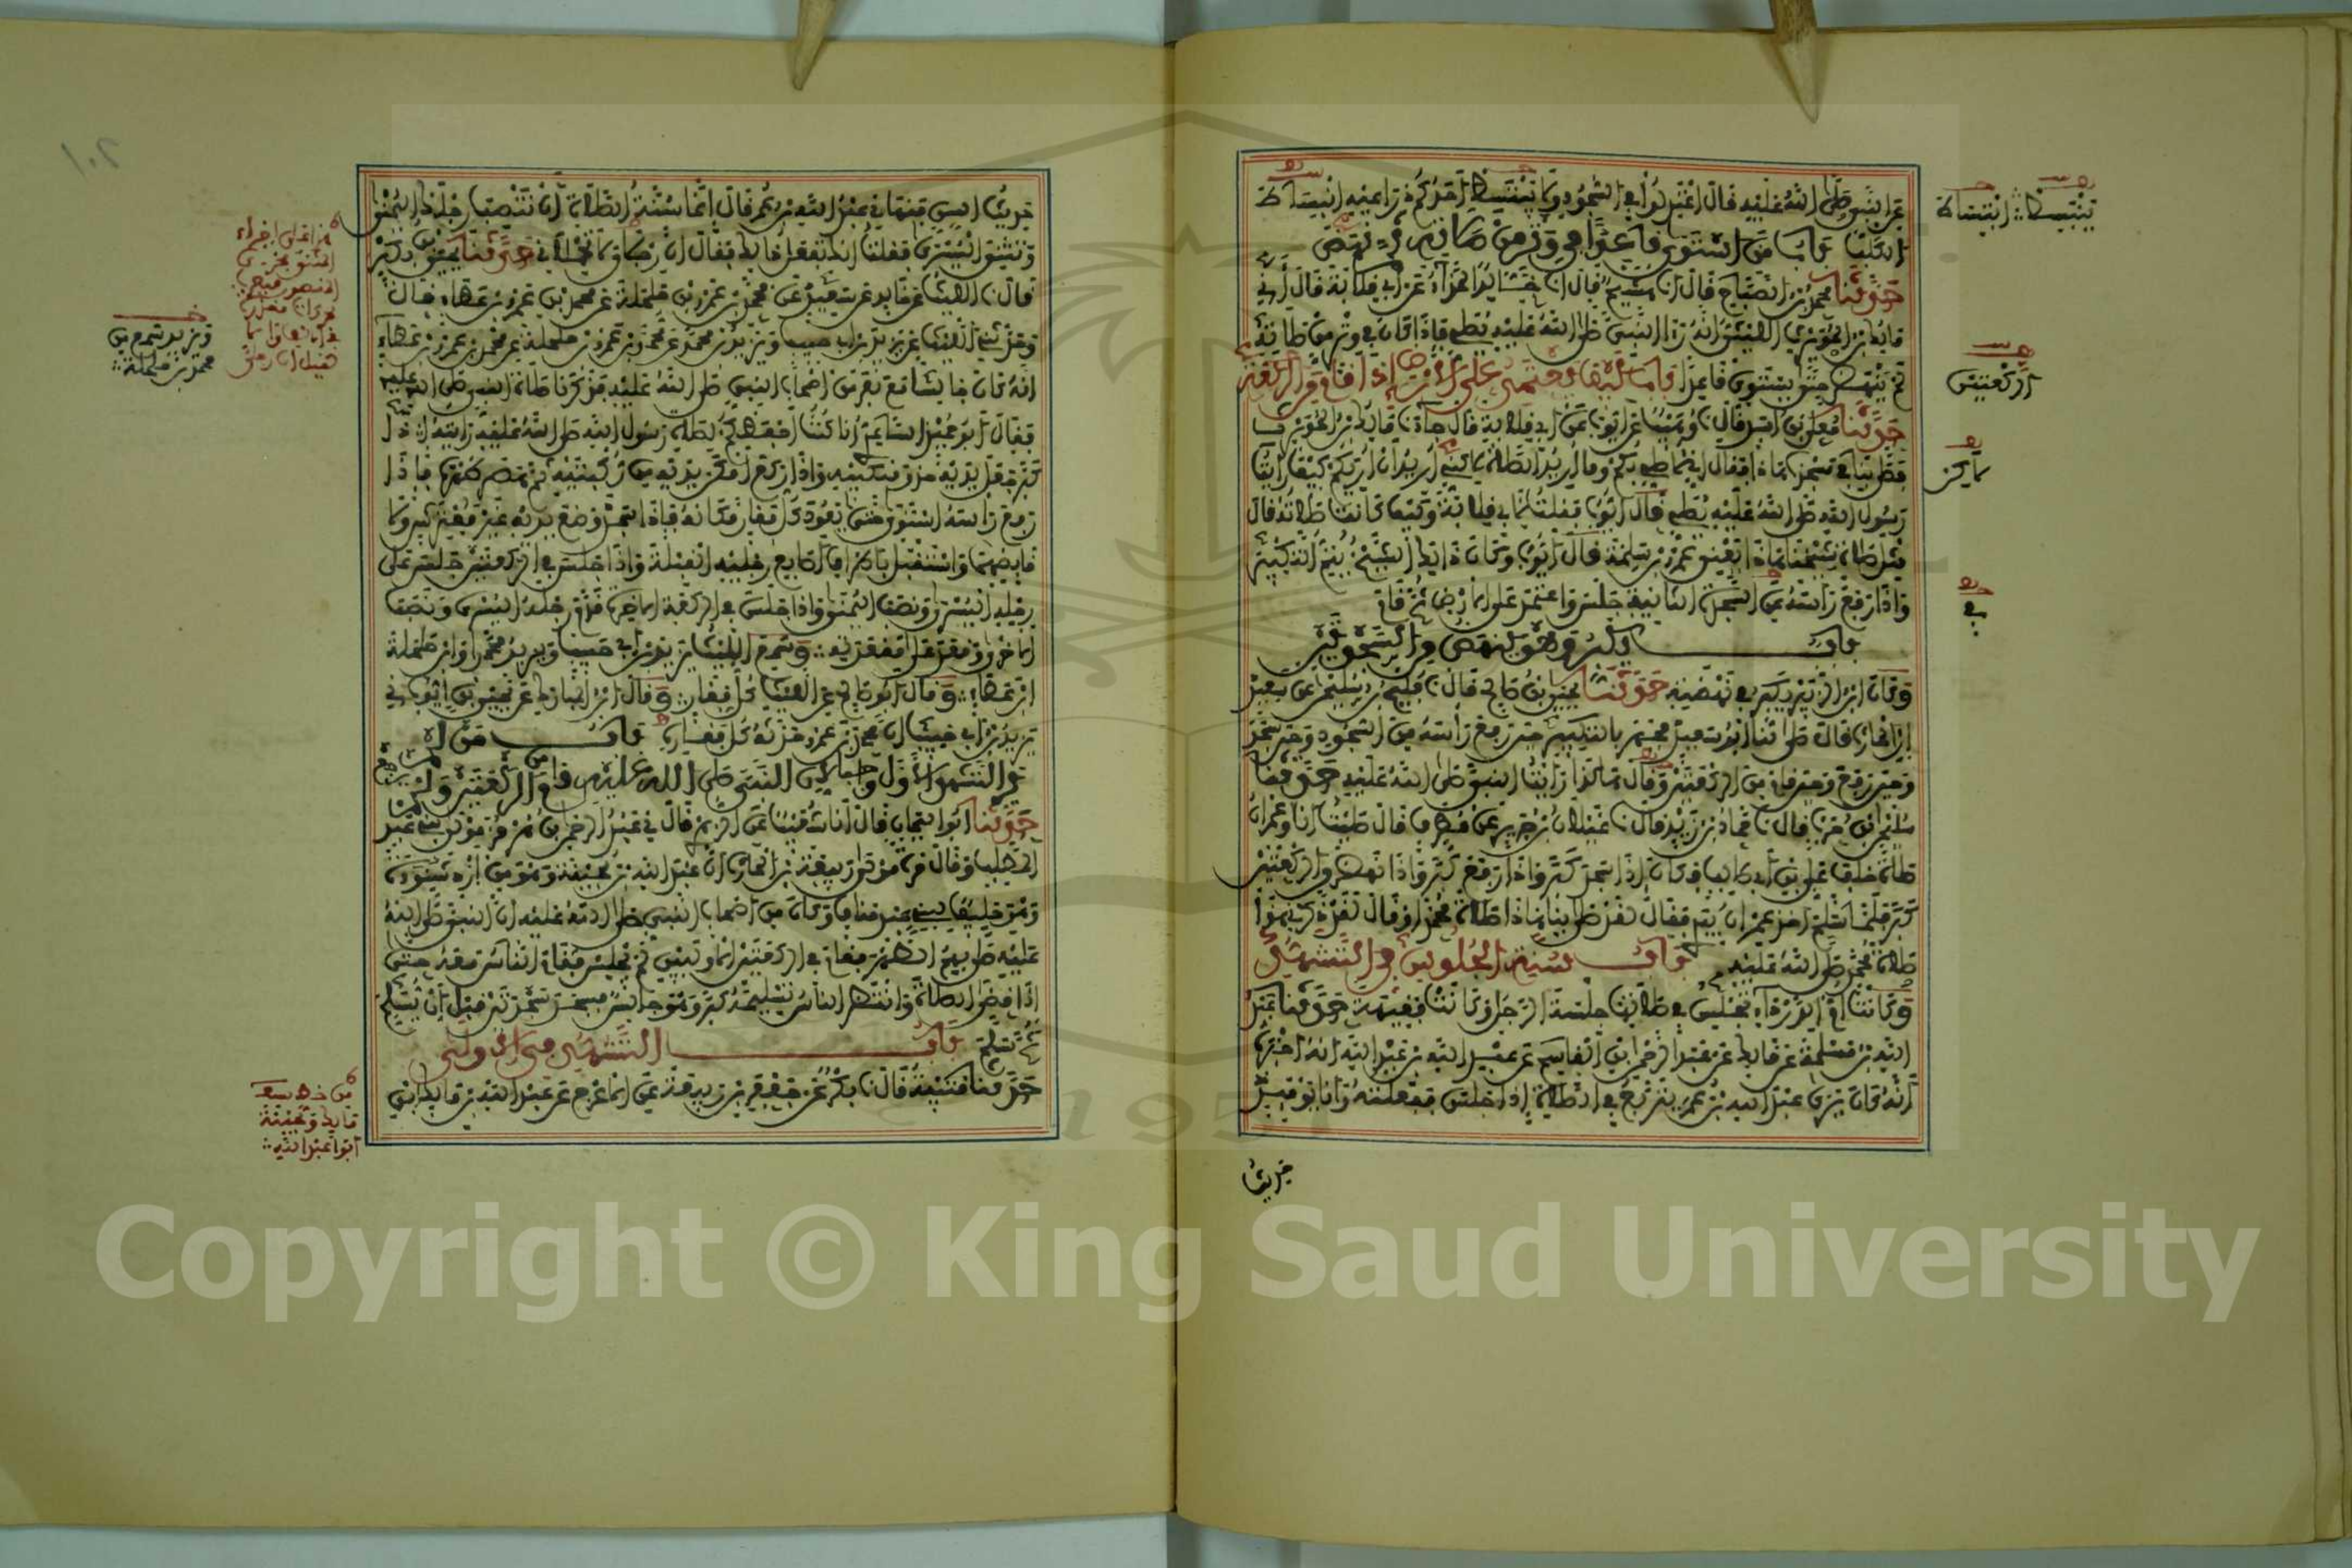 عن النبي صلى الله عليه قال اعتدلوا في السجود ولا ينبسط احدكم ذراعيه انبساط
الكلب باب من استوى قاعدا في وتر من صلاته ثم نهض
حدثنا محمد بن الصباح قال انا هشيم قال انا خالد الحذاء عن ابي قلابة قال اني
مالك بن الحويرث الليثي انه راى النبي صلى الله عليه يصلي فاذا كان في وتر من صلاته
لم ينهض حتى يستوي قاعدا باب كيف يعتمد على الارض اذا قام من الركعة
حدثنا معلى بن اسد قال نا وهيب عن ايوب عن ابي قلابة قال جاءنا مالك بن الحويرث
فصلى بنا في مسجدنا هذا فقال اني لاصلي بكم وما اريد الصلاة لكني اريد ان اريكم كيف رايت
رسول الله صلى الله عليه يصلي قال ايوب فقلت لابي قلابة وكيف كانت صلاته قال
مثل صلاة شيخنا هذا يعني عمرو بن سلمة قال ايوب وكان ذلك الشيخ يتم التكبير
واذا رفع راسه عن السجدة الثانية جلس واعتمد على الارض ثم قام
باب يكبر وهو ينهض من السجدتين
وكان ابن الزبير يكبر في نهضته حدثنا يحيى بن صالح قال نا فليح بن سليمن عن سعيد
ابن الحارث قال صلى لنا ابو سعيد فجهر بالتكبير حين رفع راسه من السجود وحين سجد
وحين رفع وحين قام من الركعتين وقال هكذا رايت النبي صلى الله عليه حدثنا
سليمن بن حرب قال نا حماد بن زيد قال نا غيلان بن جرير عن مطرف قال صليت انا وعمران
صلاة خلف علي بن ابي طالب فكان اذا سجد كبر واذا رفع كبر واذا نهض من الركعتين
كبر فلما سلم اخذ عمران بيدي فقال لقد صلى بنا هذا صلاة محمد او قال لقد ذكرني هذا
صلاة محمد صلى الله عليه باب سنة الجلوس في التشهد
وكانت ام الدرداء تجلس في صلاتها جلسة الرجل وكانت فقيهة حدثنا عبد
الله بن مسلمة عن مالك عن عبد الرحمن بن القاسم عن عبد الله بن عبد الله انه اخبره
انه كان يرى عبد الله بن عمر يتربع في الصلاة اذا جلس ففعلته وانا يومئذ
حديث
حديث السن فنهاني عبد الله بن عمر قال انما سنة الصلاة ان تنصب رجلك اليمنى
وتثني اليسرى فقلت انك تفعل ذلك فقال ان رجلاي لا تحملاني حدثنا يحيى بن بكير
قال نا الليث عن خالد عن سعيد عن محمد بن عمرو بن حلحلة عن محمد بن عمرو بن عطاء قال
وحدثني الليث عن يزيد بن ابي حبيب ويزيد بن محمد عن محمد بن عمرو بن حلحلة عن محمد بن عمرو بن عطاء
انه كان جالسا مع نفر من اصحاب النبي صلى الله عليه فذكرنا صلاة النبي صلى الله عليه
فقال ابو حميد الساعدي انا كنت احفظكم لصلاة رسول الله صلى الله عليه رايته اذا
كبر جعل يديه حذو منكبيه واذا ركع امكن يديه من ركبتيه ثم هصر ظهره فاذا
رفع راسه استوى حتى يعود كل فقار مكانه فاذا سجد وضع يديه غير مفترش ولا
قابضهما واستقبل باطراف اصابع رجليه القبلة واذا جلس في الركعتين جلس على
رجله اليسرى ونصب اليمنى واذا جلس في الركعة الاخرة قدم رجله اليسرى ونصب
الاخرى وقعد على مقعدته وسمع الليث يزيد بن ابي حبيب ويزيد محمدا وابن حلحلة
ابن عطاء وقال ابو صالح عن الليث كل فقار وقال ابن المبارك عن يحيى بن ايوب ني
يزيد بن ابي حبيب ان محمد بن عمرو حدثه كل فقاره باب من لم
ير التشهد الاول واجبا لان النبي صلى الله عليه قام من الركعتين ولم يرجع
حدثنا ابو اليمان قال انا شعيب عن الزهري قال ني عبد الرحمن بن هرمز مولى بني عبد
المطلب وقال مرة مولى ربيعة بن الحارث ان عبد الله بن بحينة وهو من ازد شنوءة
وهو حليف لبني عبد مناف وكان من اصحاب النبي صلى الله عليه ان النبي صلى الله
عليه صلى بهم الظهر فقام في الركعتين الاوليين لم يجلس فقام الناس معه حتى
اذا قضى الصلاة وانتظر الناس تسليمه كبر وهو جالس فسجد سجدتين قبل ان يسلم
ثم سلم باب التشهد في الاولى
حدثنا قتيبة قال نا بكر عن جعفر بن ربيعة عن الاعرج عن عبد الله بن مالك ابن
Copyright © King Saud University
1957